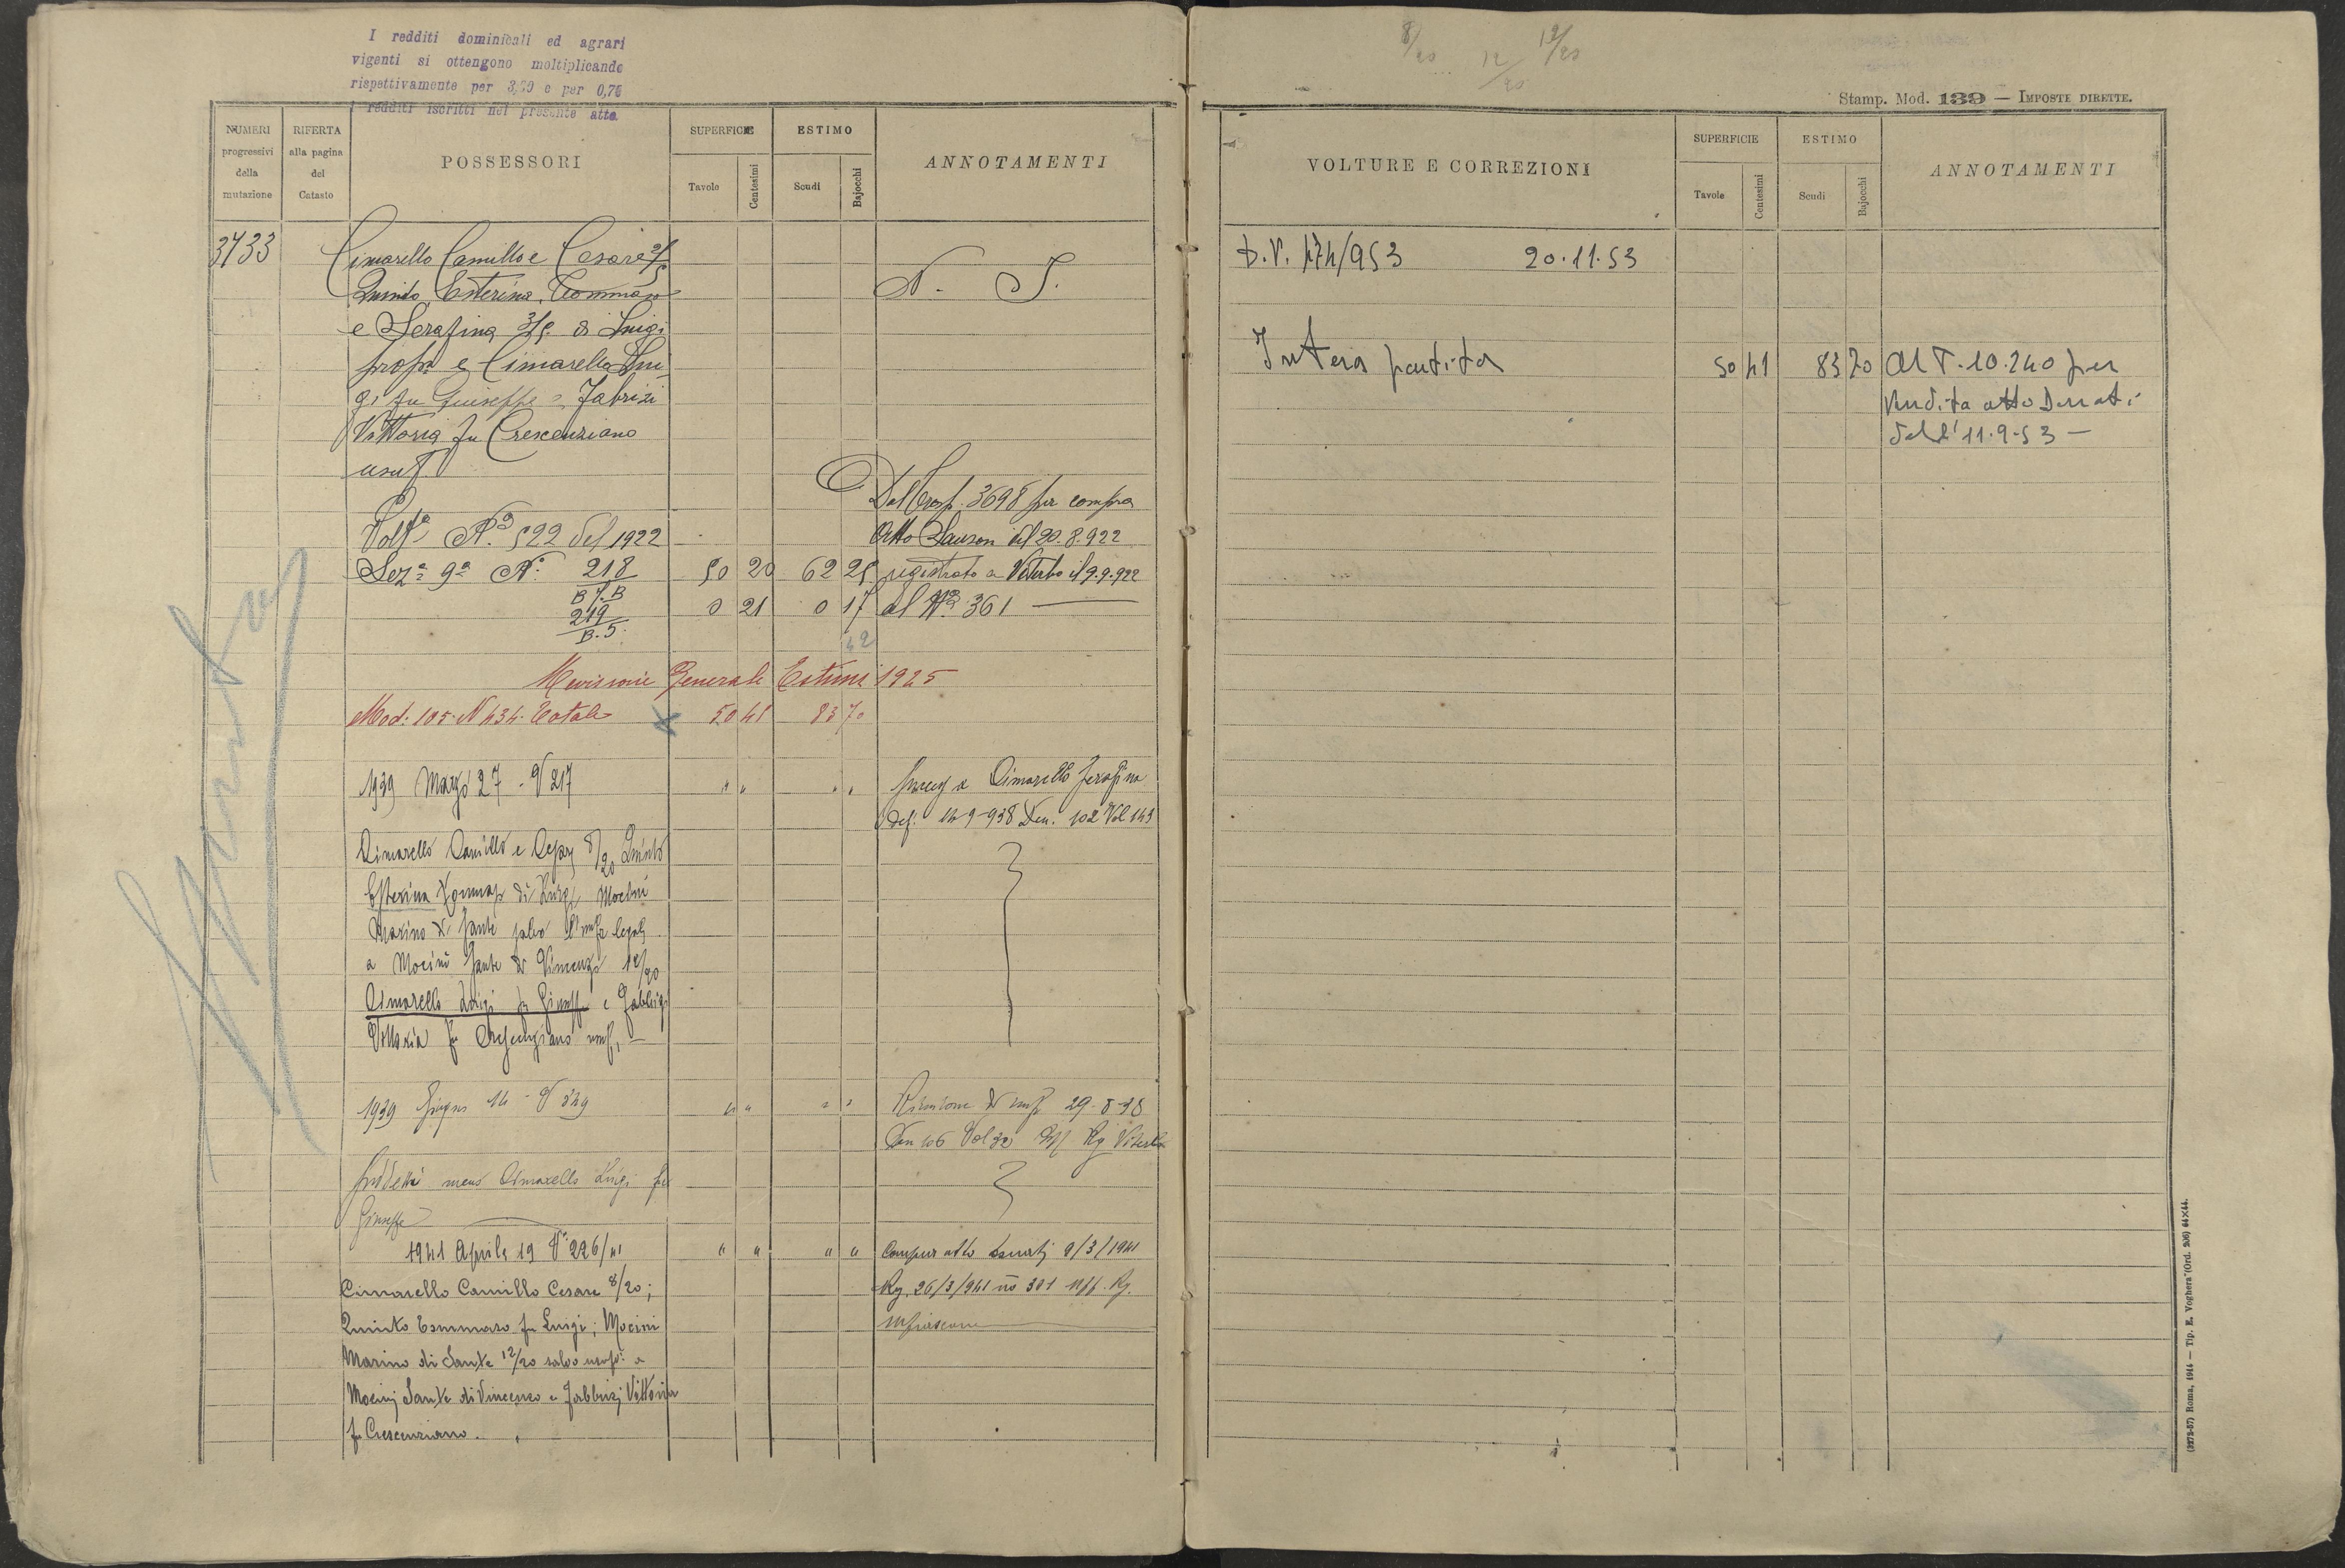 I redditi dominicali ed agrari
vigenti si ottengono moltiplicando
rispettivamente per 3,50 e per 0,75
i redditi iscritti nel presente atto
NUMERI progressivi della mutazione
RIFERTA alla pagina del Catasto
POSSESSORI
SUPERFICIE
Tavole
Centesimi
ESTIMO
Scudi
Bajocchi
ANNOTAMENTI
3733
Cimarello Camillo e Cesare 2/5
Quinto, Esterina, Tommaso
e Serafina 3/5 di Luigi
propr e Cimarello Lui
gi fu Giuseppe e Fabrizi
Vittoria fu Crescenziano
usuf.
N. I.
Volta No 522 del 1922
Sez.a 9a No 218
B 7.B
50 20 62 25
219
B.5.
0 21 0 17
42
Dal Trasp. 3698 per compra
Atto del 20.8.922
registrato a Viterbo il 9.9.922
al No 361
Revisione Generale Estimi 1925
Mod. 105. N 434. Totale 50 41 83 70
1939 Marzo 27 - V 217 " " " "
Cimarello Serafina
def. 14-9-938 Den. 102 Vol 143
Cimarello Camillo e Cesare 8/20 Quinto
Esterina Tommaso di Luigi Mocini
Marino di Sante salvo l'usufr legale
a Mocini Sante di Vincenzo 12/20
Cimarello Luigi fu Giuseppe e Fabbrizi
Vittoria fu Crescenziano usuf,
1939 Giugno 14 - V 349 " " " "
Riunione di usuf 29-8-38
Den 106 Vol 32 Uff Rg Viterbo
suddetti meno Cimarello Luigi fu
Giuseppe
1941 Aprile 19 V 226/41 " " " "
Compra atto Donati 8/3/1941
Rg. 26/3/941 no 301 Uff. Rg.
Mfiascone
Cimarello Camillo Cesare 8/20;
Quinto Tommaso fu Luigi; Mocini
Marino di Sante 12/20 salvo usufr: a
Mocinj Sante di Vincenzo e Fabbrizj Vittoria
fu Crescenziano.
8/20 12/20 12/20
Stamp. Mod. 139 — IMPOSTE DIRETTE.
VOLTURE E CORREZIONI
SUPERFICIE
Tavole
Centesimi
ESTIMO
Scudi
Bajocchi
ANNOTAMENTI
D.V. 174/953 20.11.53
Intera partita 50 41 83 70 Al T. 10.240 per
vendita atto Donati
dell'11.9.53 —
(3272-57) Roma, 1914 — Tip. E. Voghera (Ord. 206) 64×44.